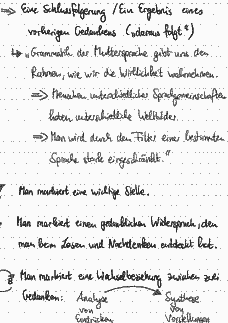 ⇒ Eine Schlussfolgerung / Ein Ergebnis eines
vorherigen Gedankens ("daraus folgt")
"Grammatik der Muttersprache gibt uns den
Rahmen, wie wir die Wirklichkeit wahrnehmen.
⇒ Menschen unterschiedlicher Sprachgemeinschaften
haben unterschiedliche Weltbilder.
⇒ Man wird durch den Filter einer bestimmten
Sprache stark eingeschränkt."
Man markiert eine wichtige Stelle.
Man markiert einen gedanklichen Widerspruch, den
man beim Lesen und Nachdenken entdeckt hat.
Man markiert eine Wechselbeziehung zwischen zwei
Gedanken: Analyse Synthese
von von
Eindrücken Vorstellungen